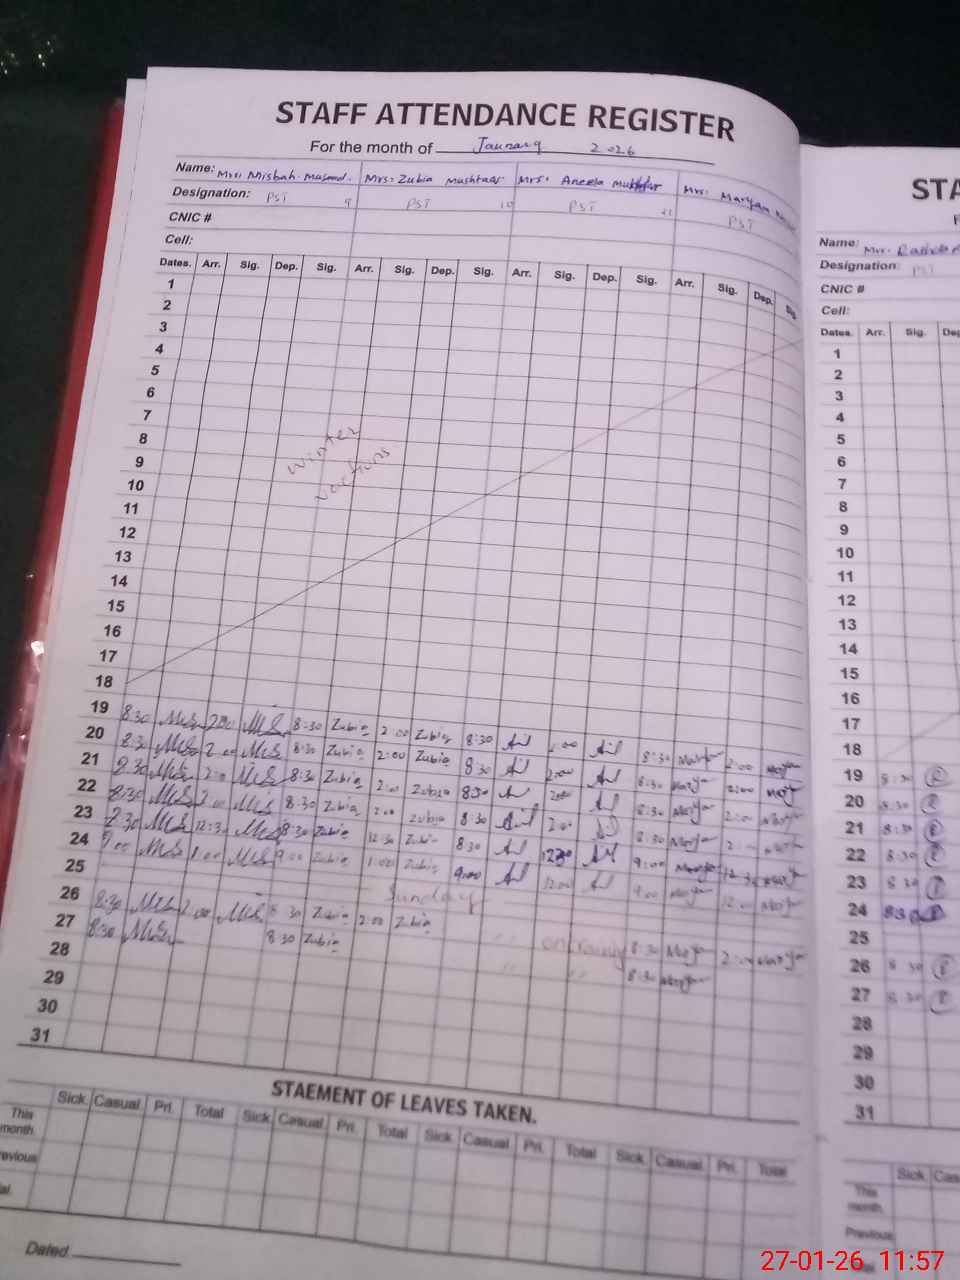 STAFF ATTENDANCE REGISTER
For the month of Jaunary 2026
Name: Mrs: Misbah Masood. Mrs: Zubia Mushtaq Mrs: Aneela Mukhtar Mrs: Maryam
Designation: PST 9 PST 10 PST 11 PST
CNIC #
Cell:
Dates. Arr. Sig. Dep. Sig. Arr. Sig. Dep. Sig. Arr. Sig. Dep. Sig. Arr. Sig. Dep. Sig.
1
2
3
4
5
6
7
8
9
10
11
12
13
14
15
16
17
18
winter
vactions
19 8:30 MiS 2:00 MiS 8:30 Zubia 2:00 Zubia 8:30 2:00 8:30 Maryam 2:00 Maryam
20 8:30 MiS 2:00 MiS 8:30 Zubia 2:00 Zubia 8:30 2:00 8:30 Maryam 2:00 Maryam
21 8:30 MiS 2:00 MiS 8:30 Zubia 2:00 Zubia 8:30 2:00 8:30 Maryam 2:00 Maryam
22 8:30 MiS 2:00 MiS 8:30 Zubia 2:00 Zubia 8:30 2:00 8:30 Maryam 2:00 Maryam
23 8:30 MiS 12:30 MiS 8:30 Zubia 12:30 Zubia 8:30 12:30 9:00 Maryam 12:30 Maryam
24 9:00 MiS 1:00 MiS 9:00 Zubia 1:00 Zubia 9:00 12:00 9:00 Maryam 12:00 Maryam
25 Sunday
26 8:30 MiS 2:00 MiS 8:30 Zubia 2:00 Zubia 8:30 Maryam 2:00 Maryam
27 8:30 MiS 8:30 Zubia " " 8:30 Maryam
28
29
30
31
STAEMENT OF LEAVES TAKEN.
Sick. Casual. Pri. Total Sick. Casual. Pri. Total Sick. Casual. Pri. Total Sick. Casual. Pri. Total
This
month.
revious
al.
Dated.
STA
Name: Mrs.
Designation: PST
CNIC #
Cell:
Dates. Arr. Sig. Dep
1
2
3
4
5
6
7
8
9
10
11
12
13
14
15
16
17
18
19 8:30
20 8:30
21 8:30
22 8:30
23 8:30
24 8:30
25
26 8:30
27 8:30
28
29
30
31
Sick. Cas
This
month.
Previous
27-01-26 11:57